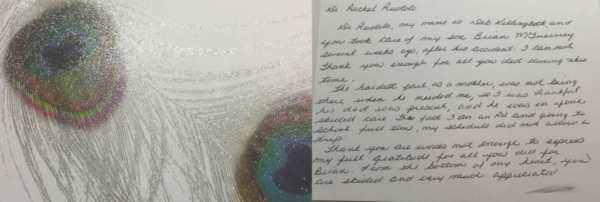 Dr. Rachel Ruotolo
Dr Ruotolo, my name is Deb Killingbeck and
you took care of my son Brian McInerney
several weeks ago, after his accident. I cannot
thank you enough for all you did during this
time.
The hardest part, as a mother, was not being
there when he needed me, so I was thankful
his dad was present, and he was in your
skilled care. The fact I am an RN and going to
school full time, my schedule did not allow a
trip.
Thank you are words not enough to express
my full gratitude for all you did for
Brian. From the bottom of my heart, you
are skilled and very much appreciated